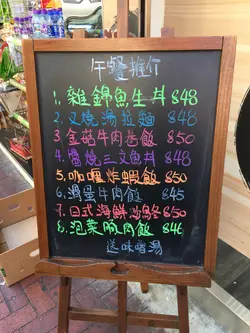 午餐推介
1. 雜錦魚生丼 $48
2. 叉燒湯拉麵 $48
3. 金菇牛肉飯 $50
4. 醬燒三文魚丼 $48
5. 咖喱炸蝦飯 $50
6. 滑蛋牛肉飯 $45
7. 日式海鮮炒烏冬 $50
8. 泡菜豚肉飯 $46
送味噌湯